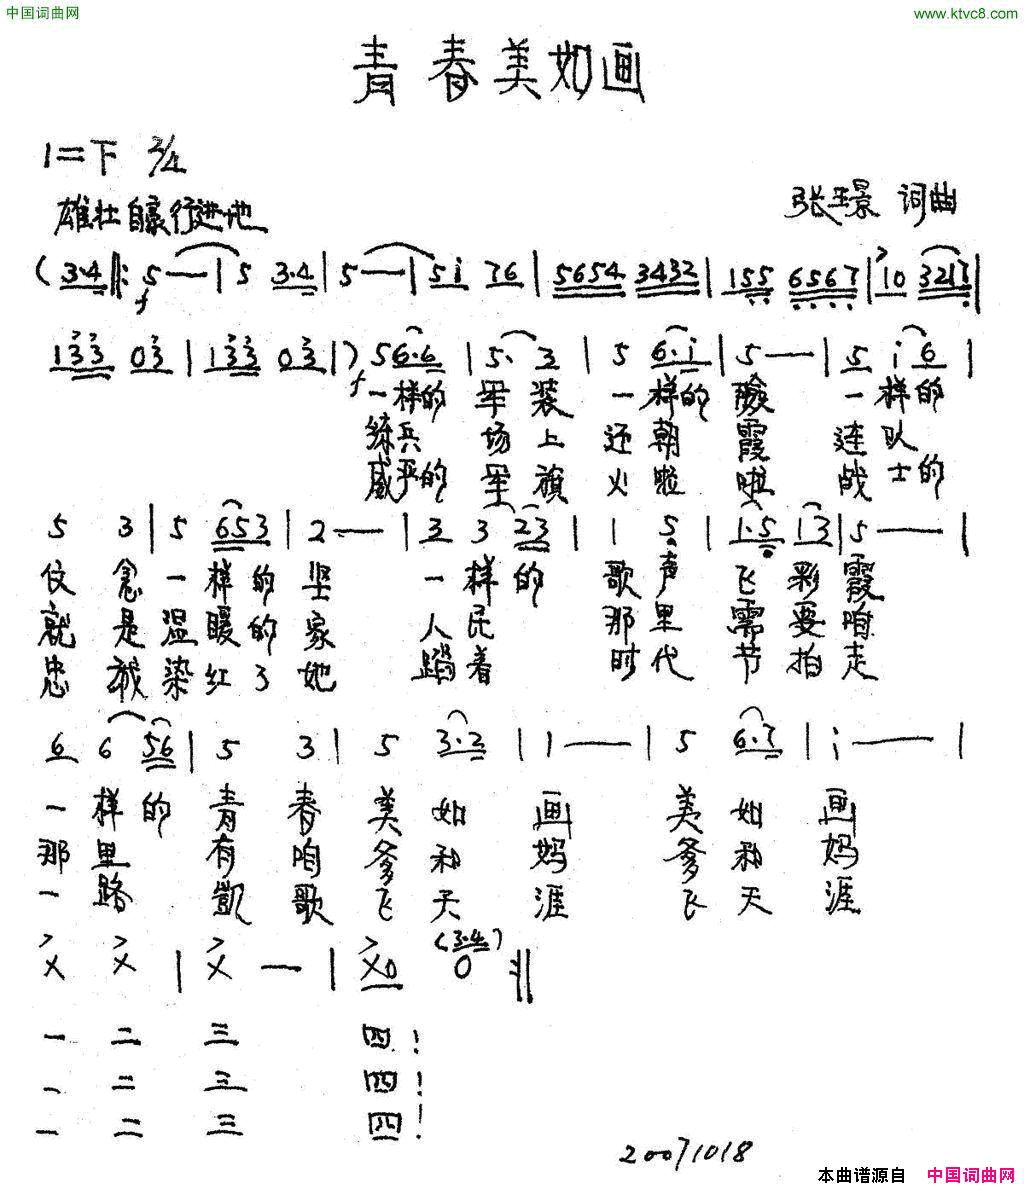 中国词曲网 www.ktvc8.com
青春美如画
1=下 2/4
雄壮自豪行进地
张玉景 词曲
(3·4‖: 5 — | 5 3·4 | 5 — | 5 i 76 | 5654 3432 | 155 6567 | 10 3217 |
133 03 | 133 03 | ) 5 6·6 | 5· 3 | 5 6·i | 5 — | 5 i 6 |
f 一样的 军装 一样的 脸 一样的
练兵 场上 还朝 霞 连队
威严的 军旗 火啦 啦 战士的
5 3 | 5 653 | 2 — | 3 3 23 | 1 5 | 1·5 13 | 5 — |
仗念一样的坚 一样的 歌声飞彩霞
就是温暖的家 人民 那里需要咱
忠诚染红了她 踏着 时代节拍走
6 6 56 | 5 3 | 5 3·2 | 1 — | 5 6·7 | i — |
一样的青春美如画 美如画
那里有咱爹和妈 爹和妈
一路凯歌飞天涯 飞天涯
X X | X — | X0 (3·4) 0 :‖
一 二 三 四!
一 二 三 四!
一 二 三 四!
20071018
本曲谱源自 中国词曲网